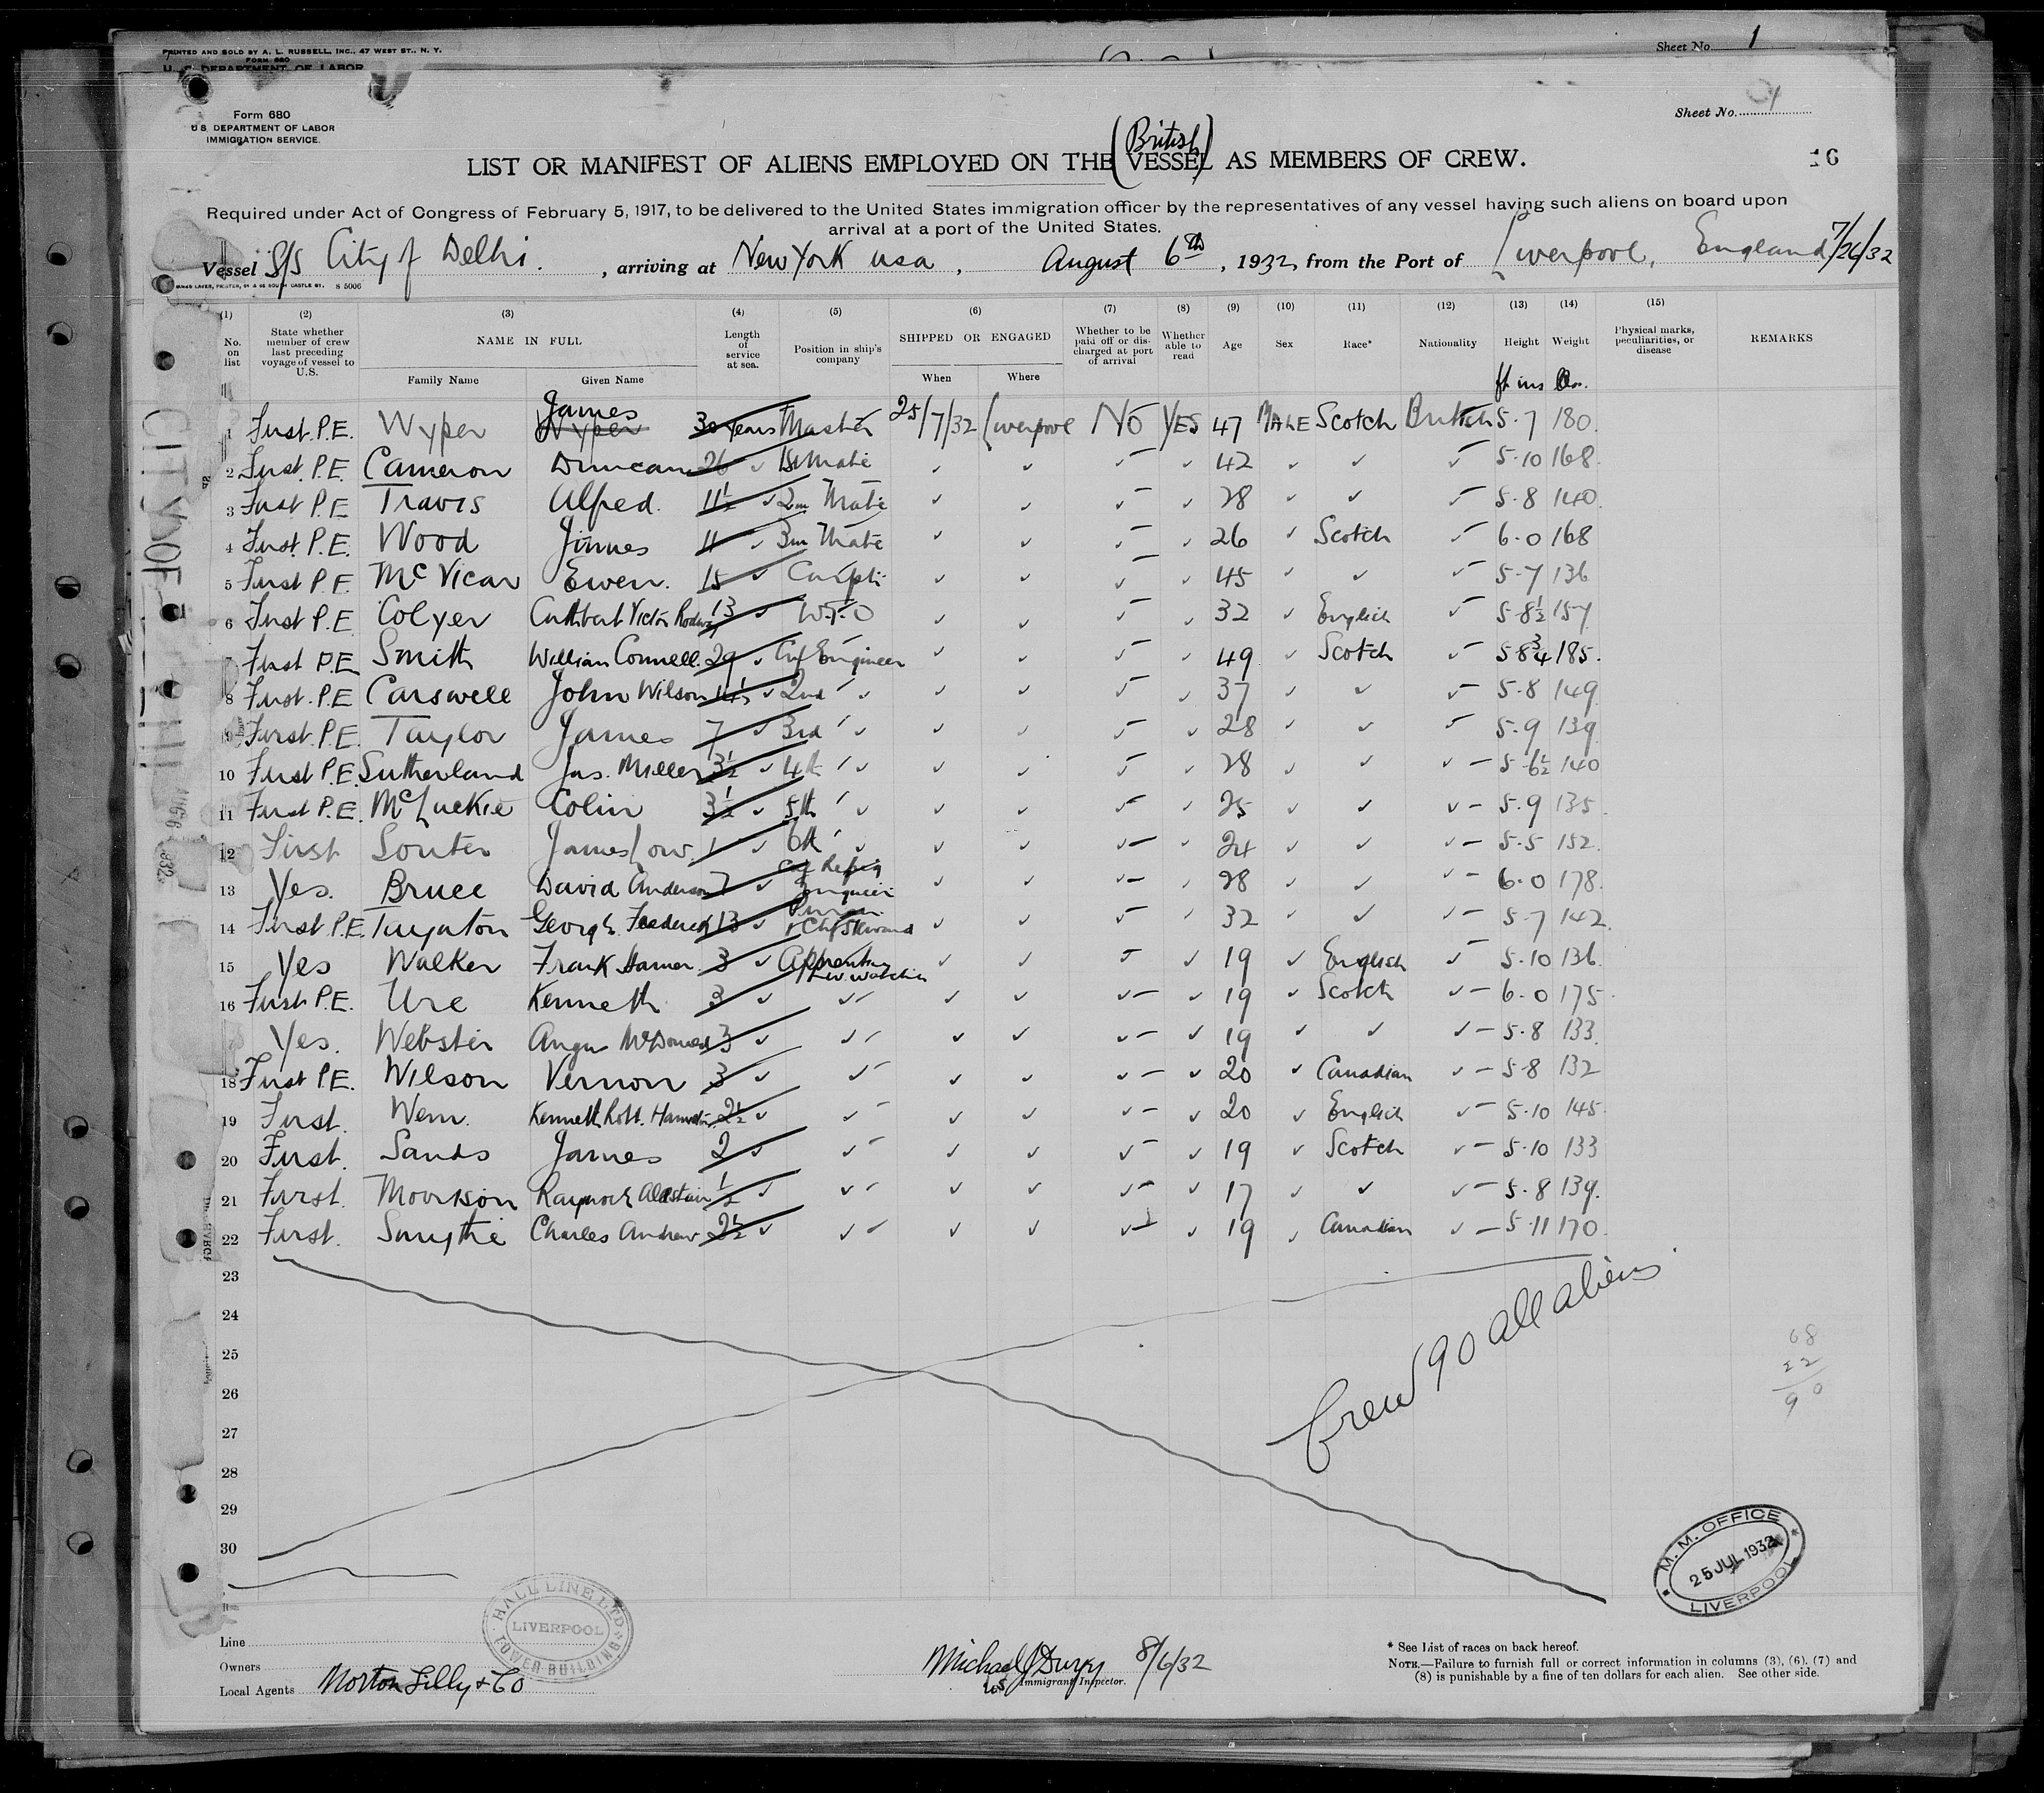 PRINTED AND SOLD BY A. L. RUSSELL, INC., 47 WEST ST., N. Y.
FORM 680
U. S. DEPARTMENT OF LABOR
Sheet No. 1
Form 680
U.S. DEPARTMENT OF LABOR
IMMIGRATION SERVICE.
Sheet No. 1
(British)
LIST OR MANIFEST OF ALIENS EMPLOYED ON THE VESSEL AS MEMBERS OF CREW.
16
Required under Act of Congress of February 5, 1917, to be delivered to the United States immigration officer by the representatives of any vessel having such aliens on board upon
arrival at a port of the United States.
Vessel S/S City of Delhi. , arriving at New York usa , August 6th , 1932, from the Port of Liverpool, England 7/26/32
(1) (2) (3) (4) (5) (6) (7) (8) (9) (10) (11) (12) (13) (14) (15)
No. on list State whether member of crew last preceding voyage of vessel to U.S. NAME IN FULL Length of service at sea. Position in ship's company SHIPPED OR ENGAGED Whether to be paid off or discharged at port of arrival Whether able to read Age Sex Race* Nationality Height Weight Physical marks, peculiarities, or disease REMARKS
Family Name Given Name When Where ft ins lbs.
James
1 First P.E. Wyper Wyper 30 years Master 25/7/32 Liverpool NO YES 47 MALE Scotch British 5.7 180.
2 First P.E. Cameron Duncan 26 ✓ 1st Mate ✓ ✓ ✓ ✓ 42 ✓ ✓ ✓ 5.10 168.
3 First P.E. Travis Alfred. 11½ ✓ 2nd Mate ✓ ✓ ✓ 28 ✓ ✓ ✓ 5.8 140
4 First P.E. Wood James 11 ✓ 3rd Mate ✓ ✓ ✓ ✓ 26 ✓ Scotch ✓ 6.0 168
5 First P.E. McVicar Ewen. 15 ✓ Carptr ✓ ✓ ✓ ✓ 45 ✓ ✓ ✓ 5.7 136
6 First P.E. Colyer Cuthbert Victor 13 ✓ W.T.O ✓ ✓ ✓ ✓ 32 ✓ English ✓ 5.8½ 157
7 First P.E. Smith William Connell. 29 ✓ Chf Engineer ✓ ✓ ✓ ✓ 49 ✓ Scotch ✓ 5 8¾ 185.
8 First P.E. Carswell John Wilson 14½ ✓ 2nd ✓ ✓ ✓ ✓ ✓ 37 ✓ ✓ ✓ 5.8 149
9 First P.E. Taylor James 7 ✓ 3rd ✓ ✓ ✓ ✓ ✓ 28 ✓ ✓ ✓ 5.9 139
10 First P.E. Sutherland Jas. Miller 3½ ✓ 4th ✓ ✓ ✓ ✓ ✓ 28 ✓ ✓ ✓ 5.6½ 140
11 First P.E. McLuckie Colin 3½ ✓ 5th ✓ ✓ ✓ ✓ ✓ 25 ✓ ✓ ✓ 5.9 135
12 First Souter James Low. 1 ✓ 6th ✓ ✓ ✓ ✓ ✓ 24 ✓ ✓ ✓ 5.5 152.
13 Yes. Bruce David Anderson 7 ✓ Chf Refrig Engineer ✓ ✓ ✓ ✓ 28 ✓ ✓ ✓ 6.0 178.
14 First P.E. Taynton George Frederick 13 ✓ Purser & Chf Steward ✓ ✓ ✓ ✓ 32 ✓ ✓ ✓ 5.7 142.
15 Yes Walker Frank Hamer. 3 ✓ Apprentice ✓ ✓ ✓ ✓ 19 ✓ English ✓ 5.10 136.
16 First P.E. Ure Kenneth 3 ✓ ✓ ✓ ✓ ✓ ✓ 19 ✓ Scotch ✓ 6.0 175.
Yes. Webster Angus McDonald 3 ✓ ✓ ✓ ✓ ✓ ✓ 19 ✓ ✓ ✓ 5.8 133.
18 First P.E. Wilson Vernon 3 ✓ ✓ ✓ ✓ ✓ ✓ 20 ✓ Canadian ✓ 5.8 132
19 First. Wem. Kenneth Robt. 2½ ✓ ✓ ✓ ✓ ✓ ✓ 20 ✓ English ✓ 5.10 145
20 First. Sands James 2 ✓ ✓ ✓ ✓ ✓ ✓ 19 ✓ Scotch ✓ 5.10 133
21 First. Morrison Alastair ½ ✓ ✓ ✓ ✓ ✓ ✓ 17 ✓ ✓ ✓ 5.8 139.
22 First. Smythe Charles Andrew. 2½ ✓ ✓ ✓ ✓ ✓ ✓ 19 ✓ Canadian ✓ 5.11 170.
23
24
25
26
27
28
29
30
Crew 90 all aliens
68
22
90
CITY OF DELHI
AUG 6 1932
M. M. OFFICE
25 JUL 1932
LIVERPOOL
HALL LINE LTD.
LIVERPOOL
TOWER BUILDING
Line
Owners
Local Agents Morton Lilly & Co
Michael J Durry 8/6/32
US Immigrant Inspector.
* See List of races on back hereof.
NOTE.—Failure to furnish full or correct information in columns (3), (6), (7) and
(8) is punishable by a fine of ten dollars for each alien. See other side.